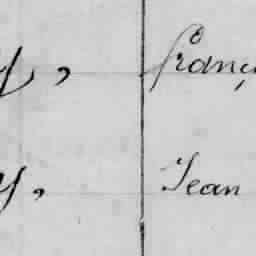 y, franç
y, Jean